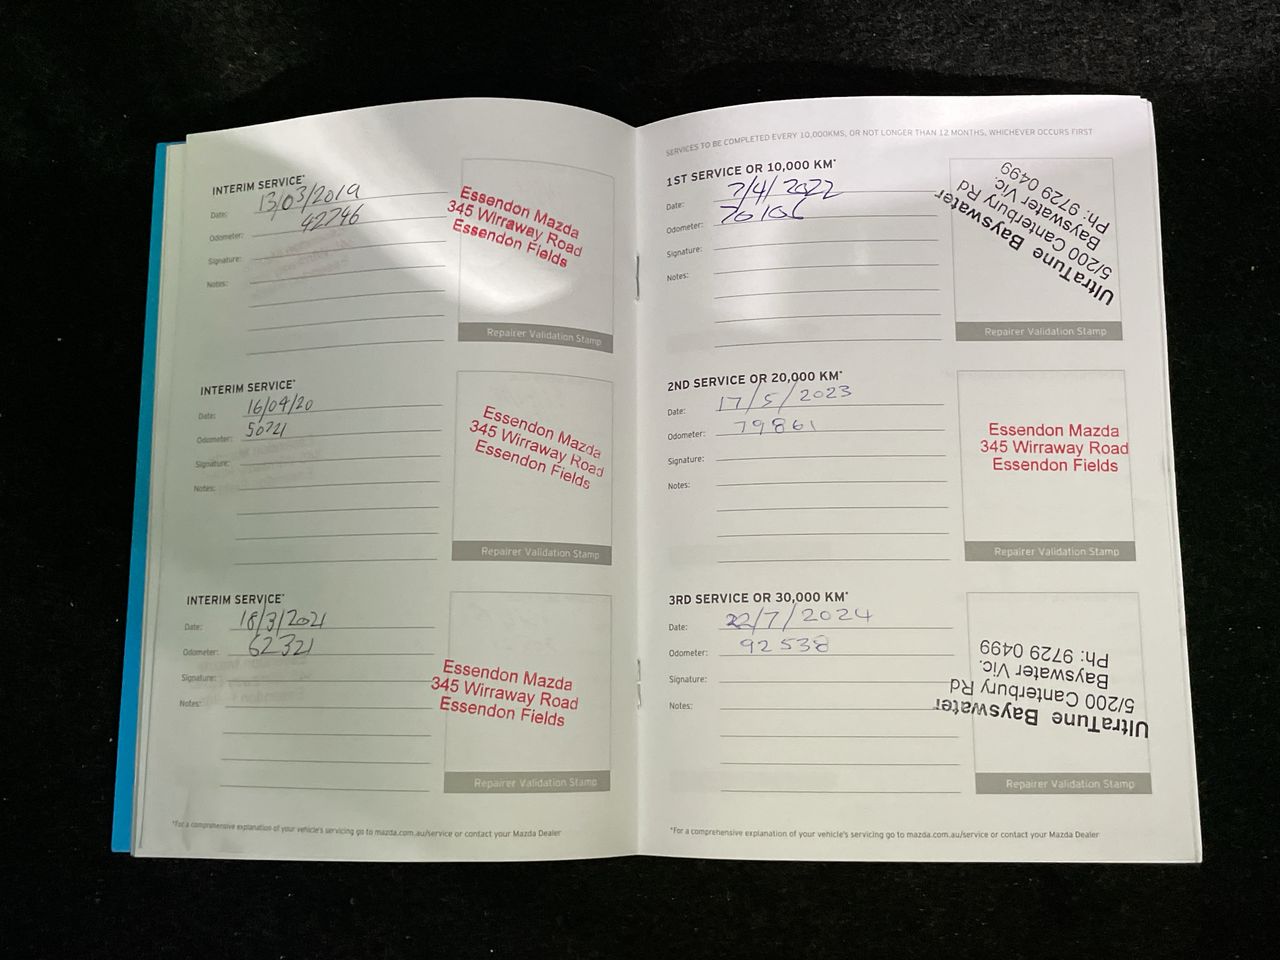 INTERIM SERVICE*
Date: 13/03/2019
Odometer: 42746
Signature:
Notes:
Essendon Mazda
345 Wirraway Road
Essendon Fields
Repairer Validation Stamp
INTERIM SERVICE*
Date: 16/04/20
Odometer: 50721
Signature:
Notes:
Essendon Mazda
345 Wirraway Road
Essendon Fields
Repairer Validation Stamp
INTERIM SERVICE*
Date: 18/3/2021
Odometer: 62321
Signature:
Notes:
Essendon Mazda
345 Wirraway Road
Essendon Fields
Repairer Validation Stamp
*For a comprehensive explanation of your vehicle's servicing go to mazda.com.au/service or contact your Mazda Dealer
SERVICES TO BE COMPLETED EVERY 10,000KMS, OR NOT LONGER THAN 12 MONTHS, WHICHEVER OCCURS FIRST
1ST SERVICE OR 10,000 KM*
Date: 7/4/2022
Odometer: 70106
Signature:
Notes:
UltraTune Bayswater
5/200 Canterbury Rd
Bayswater Vic.
Ph: 9729 0499
Repairer Validation Stamp
2ND SERVICE OR 20,000 KM*
Date: 17/5/2023
Odometer: 79861
Signature:
Notes:
Essendon Mazda
345 Wirraway Road
Essendon Fields
Repairer Validation Stamp
3RD SERVICE OR 30,000 KM*
Date: 22/7/2024
Odometer: 92538
Signature:
Notes:
UltraTune Bayswater
5/200 Canterbury Rd
Bayswater Vic.
Ph: 9729 0499
Repairer Validation Stamp
*For a comprehensive explanation of your vehicle's servicing go to mazda.com.au/service or contact your Mazda Dealer